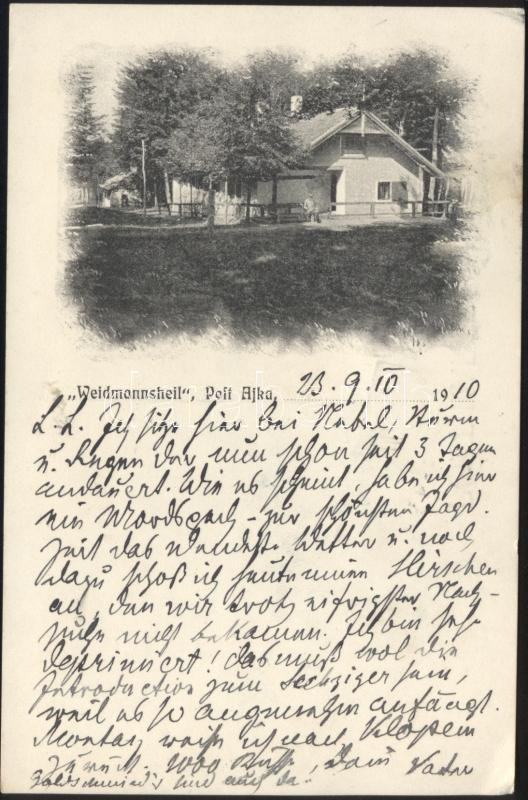 „Weidmannsheil“, Post Ajka, 23. 9. 10 1910
L. L. Ich sitze hier bei Nebel, Sturm
u. Regen der nun schon seit 3 Tagen
andauert. Wie es scheint, habe ich hier
ein Mordspech - zur schönsten Jagd-
zeit das elendste Wetter u. noch
dazu schoß ich heute einen Hirschen
an, den wir trotz eifrigster Nach-
suche nicht bekamen. Ich bin sehr
deprimiert! Das muß wol die
Introduction zum Sechziger sein,
weil es so angenehm anfängt.
Montag reise ich nach
zurück. 1000 Küsse, Dein Vater
sind auch da.